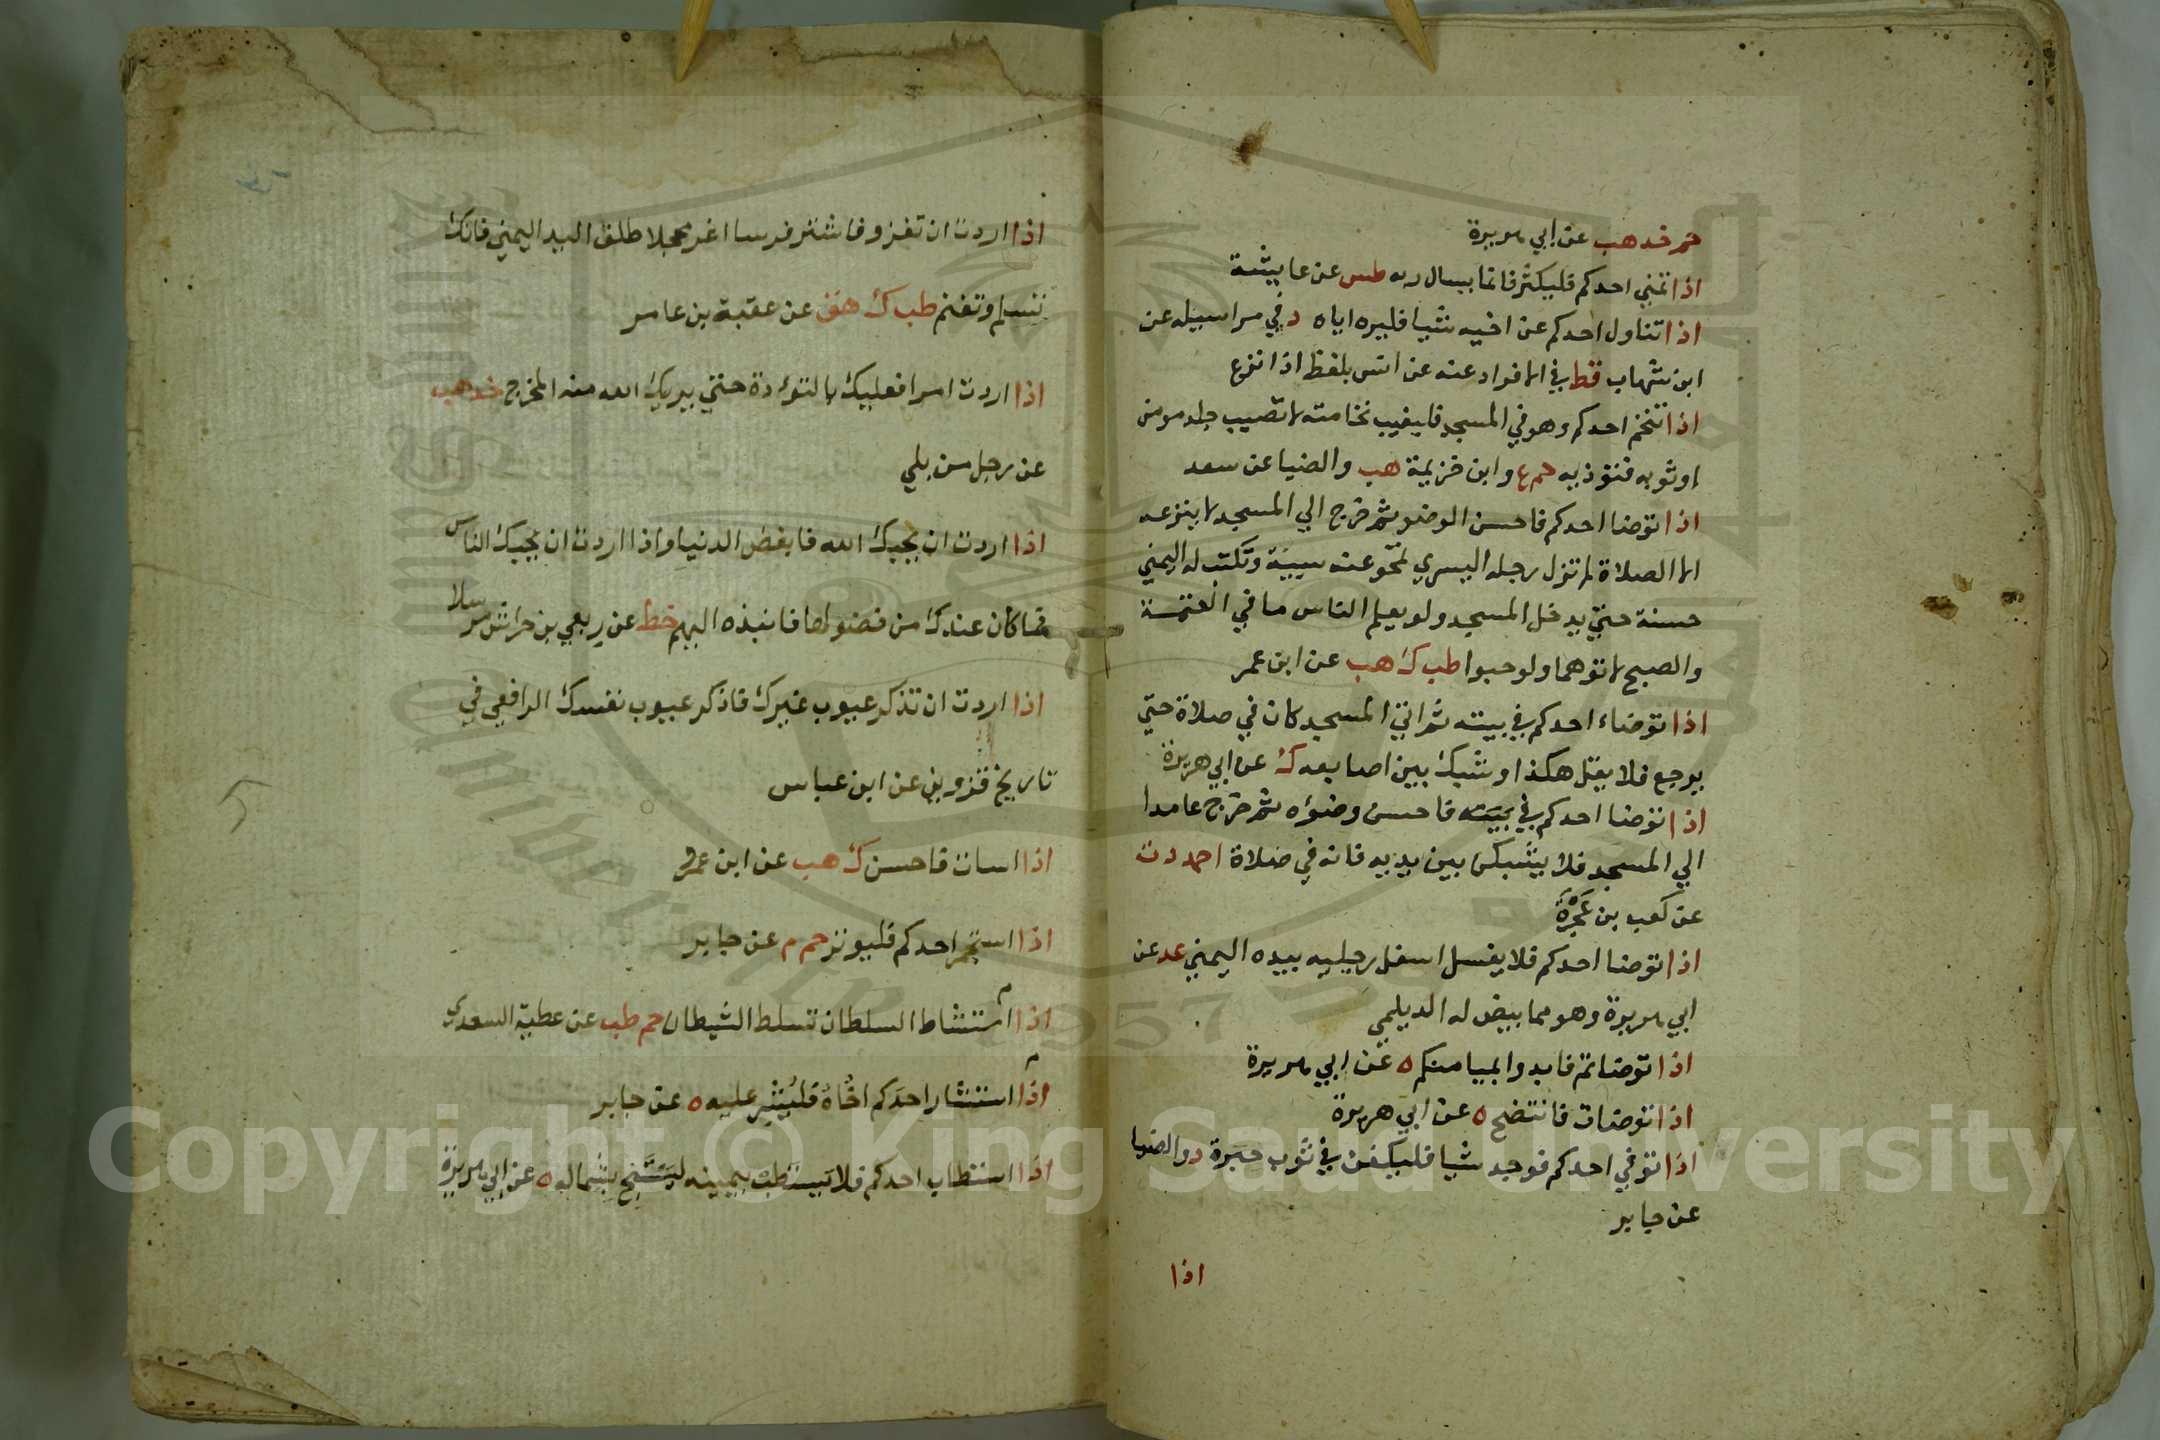 حم خد هب عن ابي هريرة
اذا تمني احدكم فليكثر فانما يسال ربه طس عن عايشة
اذا تناول احدكم عن اخيه شيا فليره اياه د في مراسيله عن
ابن شهاب قط في الافراد عنه عن انس بلفظ اذا نزع
اذا تنخم احدكم وهو في المسجد فليغيب نخامته لا تصيب جلد مومن
او ثوبه فتوذيه حم ع وابن خزيمة هب والضيا عن سعد
اذا توضا احدكم فاحسن الوضو ثم خرج الي المسجد لا ينزعه
الا الصلاة لم تزل رجله اليسري تمحو عنه سيئة وتكتب له اليمني
حسنة حتي يدخل المسجد ولو يعلم الناس ما في العتمة
والصبح لاتوهما ولو حبوا طب ك هب عن ابن عمر
اذا توضاء احدكم في بيته ثم اتي المسجد كان في صلاة حتي
يرجع فلا يقل هكذا وشبك بين اصابعه ك عن ابي هريرة
اذا توضا احدكم في بيته فاحسن وضوءه ثم خرج عامدا
الي المسجد فلا يشبكن بين يديه فانه في صلاة احم د ت
عن كعب بن عجرة
اذا توضا احدكم فلا يغسل اسفل رجليه بيده اليمني عد عن
ابي هريرة وهو مما بيض له الديلمي
اذا توضاتم فابدوا بميامنكم ه عن ابي هريرة
اذا توضات فانتضح ه عن ابي هريرة
اذا توفي احدكم فوجد شيا فليكفن في ثوب حبرة د والضيا
عن جابر
اذا
اذا اردت ان تغزو فاشتر فرسا اغر محجلا طلق اليد اليمني فانك
تسلم وتغنم طب ك هق عن عقبة بن عامر
اذا اردت امرا فعليك بالتوءدة حتي يريك الله منه المخرج خد هب
عن رجل من بلي
اذا اردت ان يحبك الله فابغض الدنيا واذا اردت ان يحبك الناس
فما كان عندك من فضولها فانبذه اليهم خط عن ربعي بن حراش مرسلا
اذا اردت ان تذكر عيوب غيرك فاذكر عيوب نفسك الرافعي في
تاريخ قزوين عن ابن عباس
اذا اسات فاحسن ك هب عن ابن عمرو
اذا استجمر احدكم فليوتر حم م عن جابر
اذا استشاط السلطان تسلط الشيطان حم طب عن عطية السعدي
اذا استشار احدكم اخاه فليشر عليه ه عن جابر
اذا استطاب احدكم فلا يستطب بيمينه ليستنج بشماله ه عن ابي هريرة
Copyright © King Saud University
1957